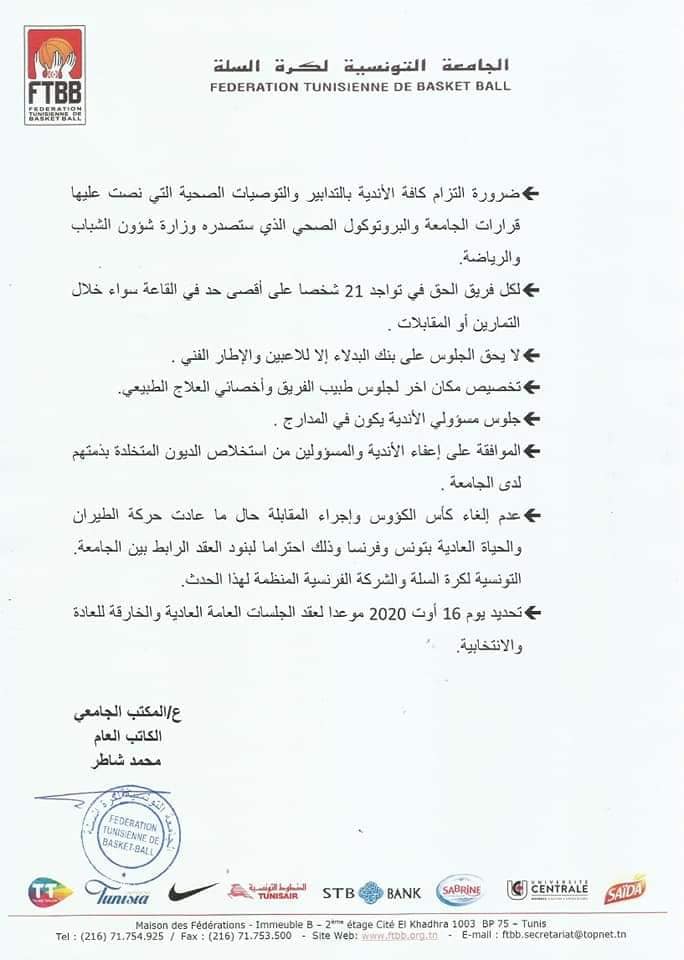 FTBB
FEDERATION
TUNISIENNE DE
BASKET BALL
الجامعة التونسية لكرة السلة
FEDERATION TUNISIENNE DE BASKET BALL
←ضرورة التزام كافة الأندية بالتدابير والتوصيات الصحية التي نصت عليها
قرارات الجامعة والبروتوكول الصحي الذي ستصدره وزارة شؤون الشباب
والرياضة.
←لكل فريق الحق في تواجد 21 شخصا على أقصى حد في القاعة سواء خلال
التمارين أو المقابلات .
←لا يحق الجلوس على بنك البدلاء إلا للاعبين والإطار الفني .
←تخصيص مكان اخر لجلوس طبيب الفريق وأخصائي العلاج الطبيعي.
←جلوس مسؤولي الأندية يكون في المدارج .
←الموافقة على إعفاء الأندية والمسؤولين من استخلاص الديون المتخلدة بذمتهم
لدى الجامعة .
←عدم إلغاء كأس الكؤوس وإجراء المقابلة حال ما عادت حركة الطيران
والحياة العادية بتونس وفرنسا وذلك احتراما لبنود العقد الرابط بين الجامعة.
التونسية لكرة السلة والشركة الفرنسية المنظمة لهذا الحدث.
←تحديد يوم 16 أوت 2020 موعدا لعقد الجلسات العامة العادية والخارقة للعادة
والانتخابية.
ع/المكتب الجامعي
الكاتب العام
محمد شاطر
الجامعة التونسية لكرة السلة
FEDERATION
TUNISIENNE DE
BASKET-BALL
TT
Tunisia
الخطوط التونسية
TUNISAIR
STB BANK
SABRINE
UNIVERSITÉ
CENTRALE
SAÏDA
Maison des Fédérations - Immeuble B – 2ème étage Cité El Khadhra 1003 BP 75 – Tunis
Tel : (216) 71.754.925 / Fax : (216) 71.753.500 - Site Web: www.ftbb.org.tn - E-mail : ftbb.secretariat@topnet.tn